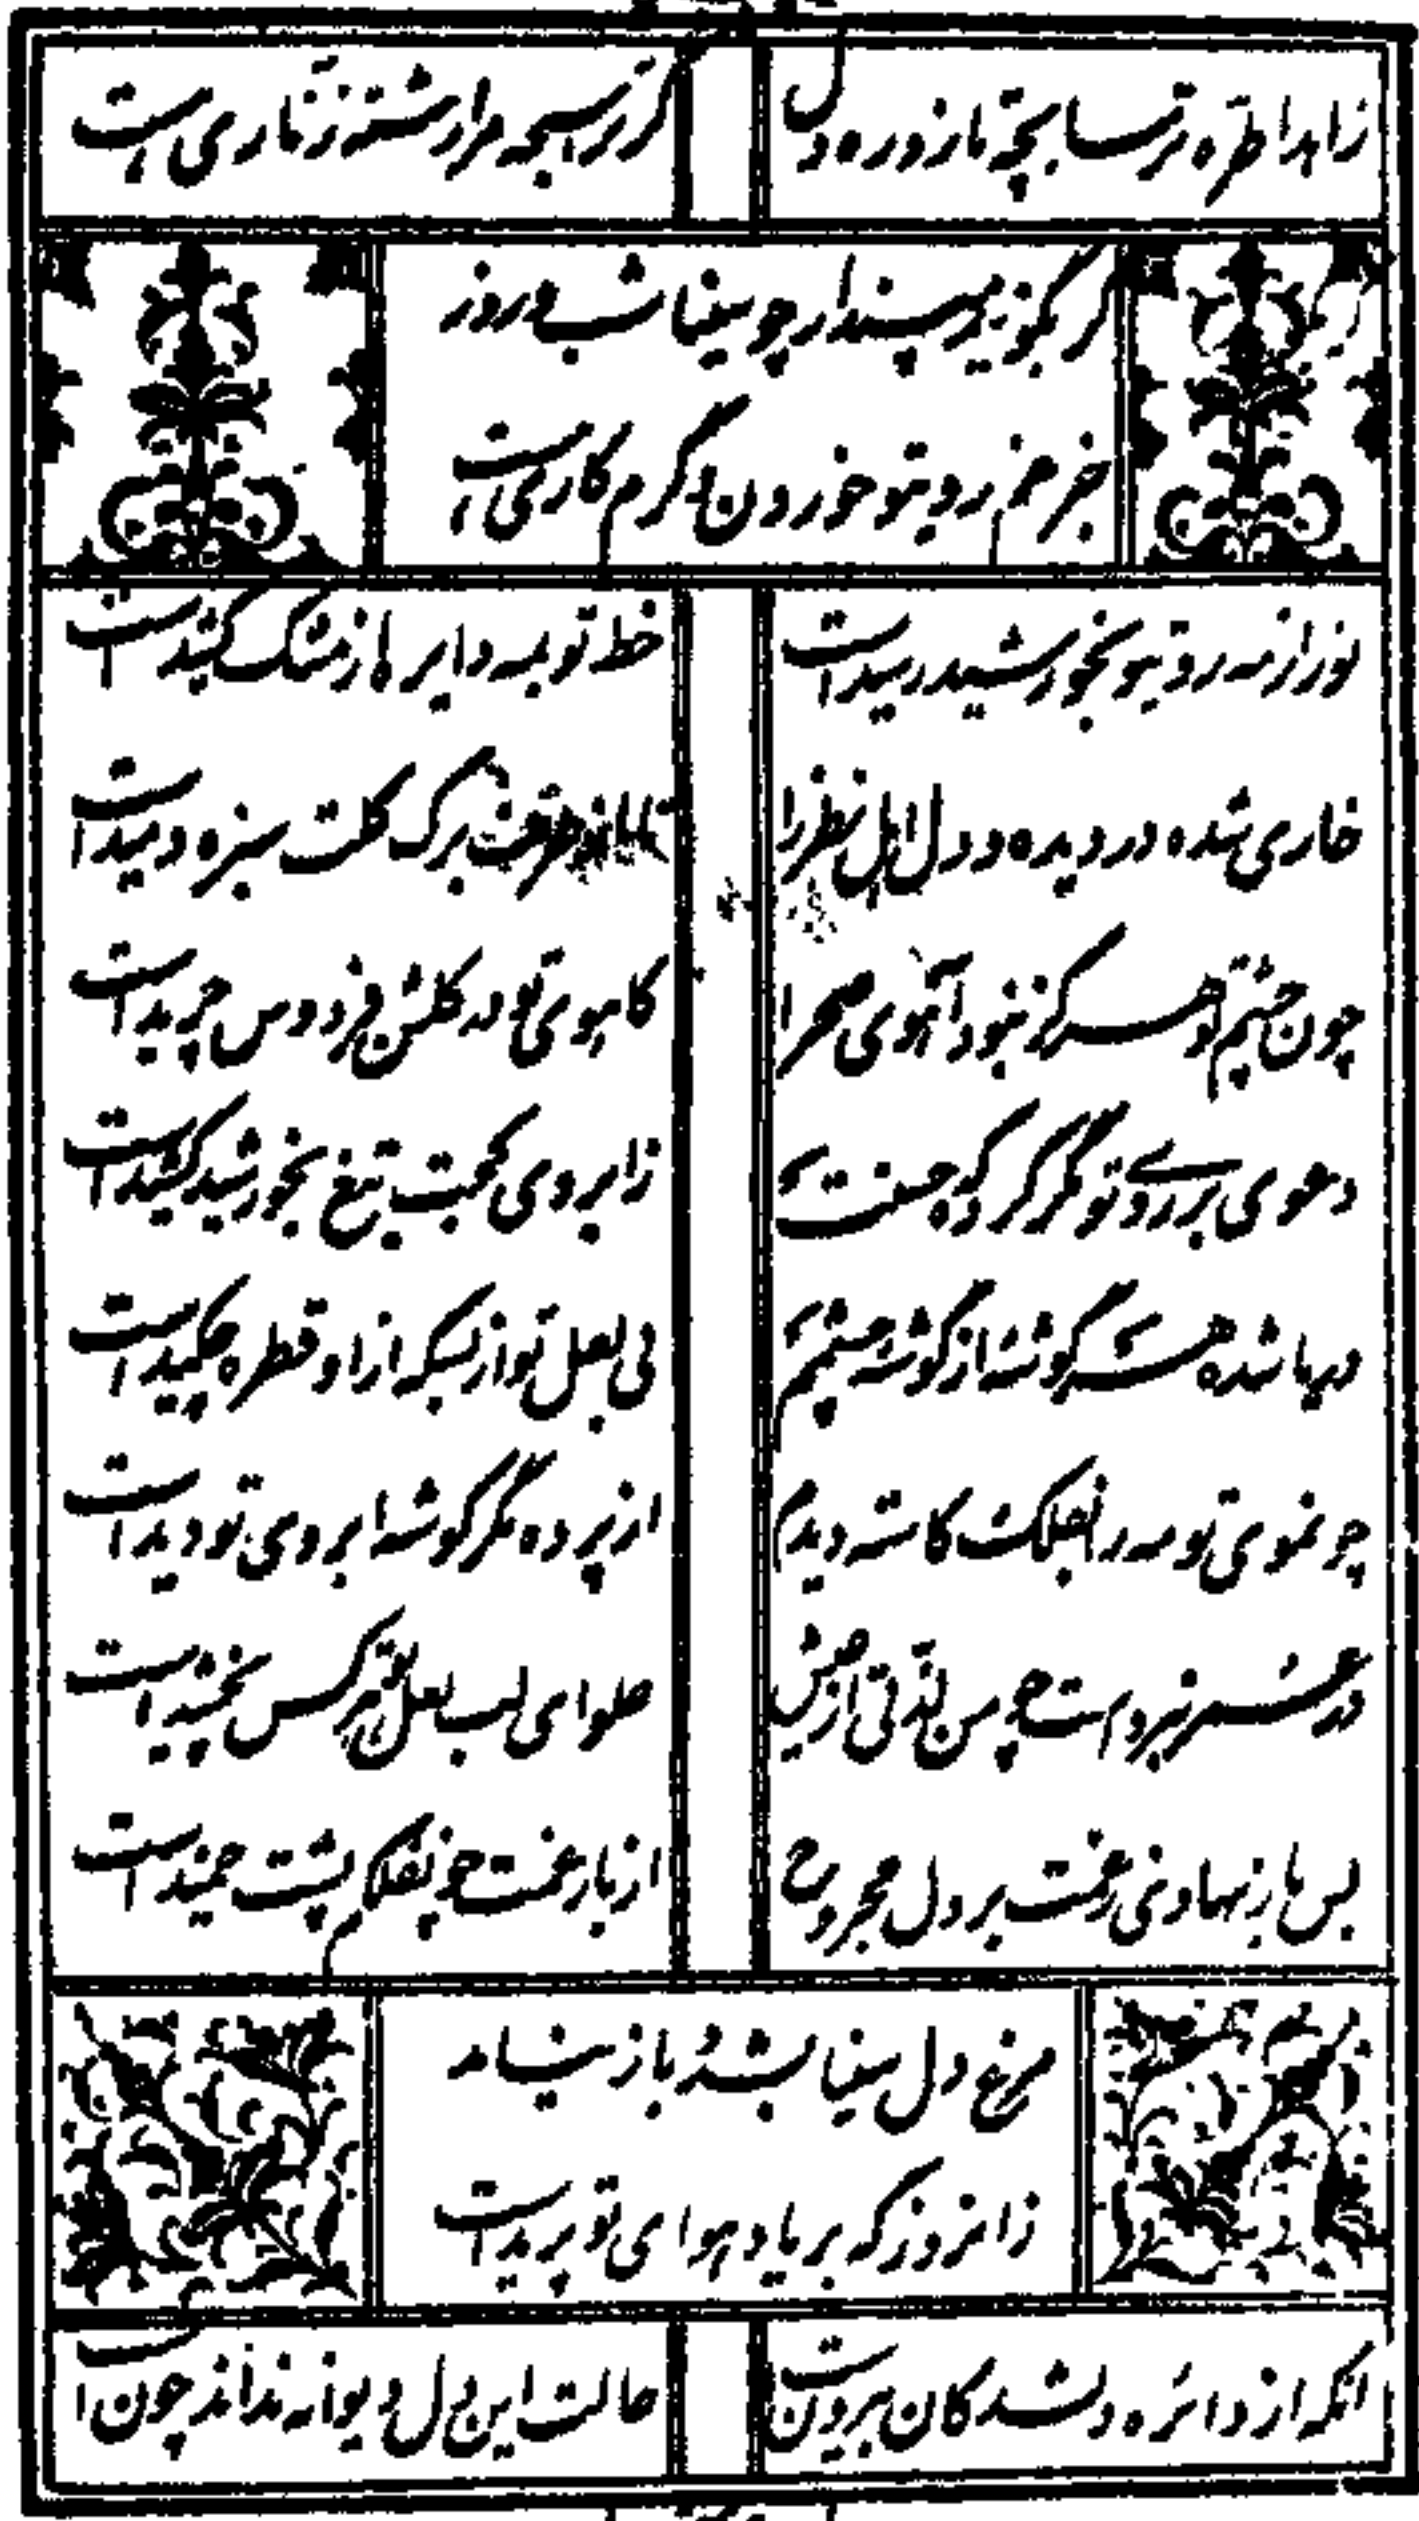 زاهدا طره ترسا بچۀ تا زد ره دل
کز سبحه مرا رشته زناری است
گر بگویم مپندار چو بینا شب و روز
جز غم روی تو خوردن دگرم کاری است
نور از مه روی تو بخورشید رسیدست
خط تو بمه دایره از مشک کشیدست
خاری شده در دیده و دل اهل نظر را
تا برگ گلت سبزه دمیدست
چون چشم تو هرگز نبود آهوی صحرا
کاهوی تو در گلشن فردوس چریدست
دعوی بر روی تو مگر کرد که حسنت
ز ابروی کجت تیغ بخورشید کشیدست
دریا شده هر گوشه از گوشه چشمم
بی لعل تو از بسکه ازو قطره چکیدست
چو موی تو مه را بفلک کاسته دیدم
از پرده مگر گوشه ابروی تو دیدست
در عمر نبردست چو من لذتی از عیش
حلوای لب لعل تو هر کس نچشیدست
بس بار نهادی ز غمت بر دل مجروح
از بار غمت چون فلکم پشت خمیدست
مرغ دل بینا بشد و باز نیامد
زانروز که بر یاد هوای تو پریدست
آنکه از دائره دلشدگان بیرونست
حالت این دل دیوانه نداند چونست